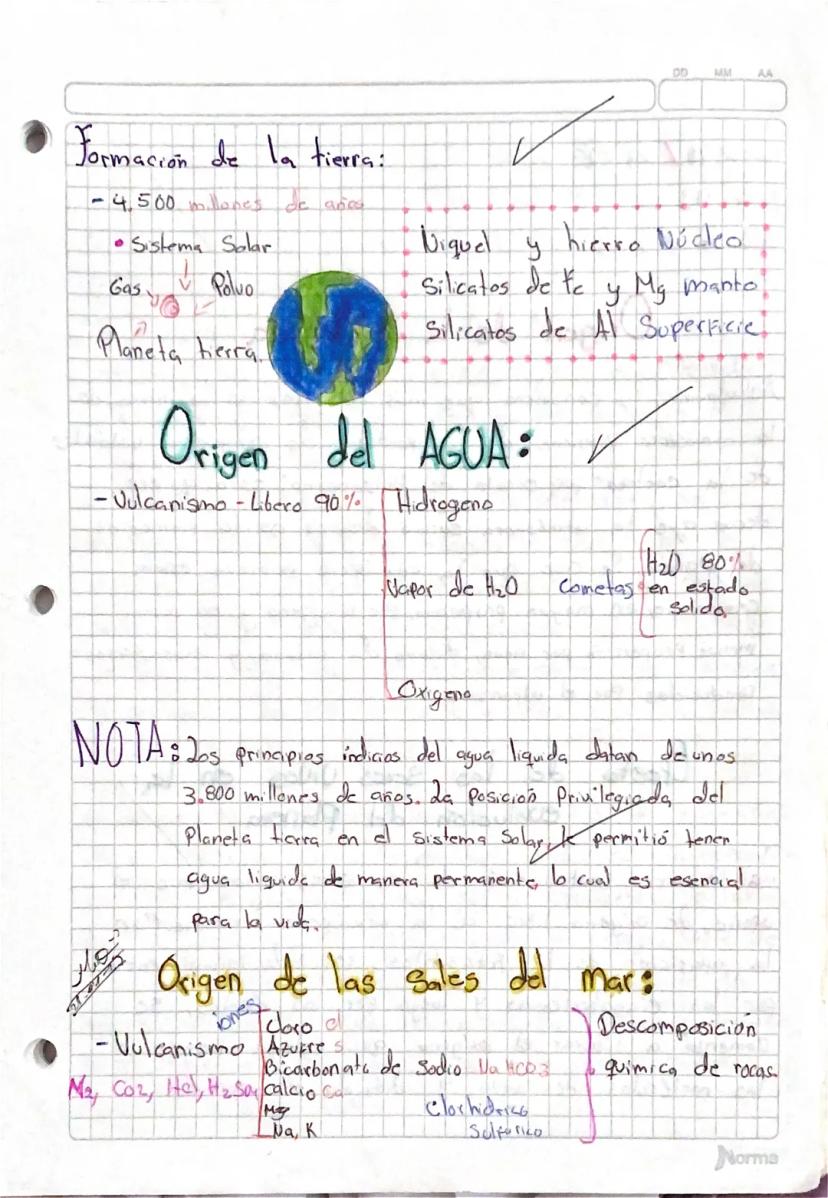 DD MM AA
Formación de la tierra:
- 4,500 millones de años
• Sistema Solar
Gas Polvo
Planeta tierra
Niquel y hierro Núcleo
Silicatos de Fe y Mg manto
Silicatos de Al Superficie
Origen del AGUA:
- Vulcanismo - Libero 90%
Hidrogeno
Vapor de H2O Cometas
H2O 80%
en estado
solido
Oxigeno
NOTA: Los principios indicios del agua liquida datan de unos
3.800 millones de años. La posición privilegiada del
Planeta tierra en el sistema Solar, le permitió tener
agua liquida de manera permanente, lo cual es esencial
para la vida.
Origen de las sales del mar:
- Vulcanismo iones
N2, CO2, HCl, H2SO4
Cloro cl
Azufre s
Bicarbonato de Sodio NaHCO3
Calcio Ca
Mg
Na, K
Clorhidrico
Sulfurico
Descomposición
quimica de rocas.
Norma